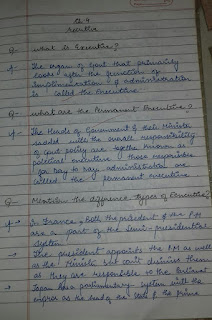 Ch 4
Executive
Q- What is Executive?
A- The organ of Govt that primarily
looks after the function of
implementation & administration
is called the Executive
Q- What are the Permanent Executive?
A- The Heads of Government & their Minister
saddled with the overall responsibility
of Govt policy are together known as
political executive & those responsible
for day to day administration are
called the permanent executive
Q- Mention the difference types of Executive?
A- → In France, Both the president & the PM
are a part of the semi-presidential
system.
→ The president appoints the PM as well
as the Minister but can't dismiss them
as they are responsible to the Parliament
→ Japan has parliamentary system with the
as the head of the state & the prime